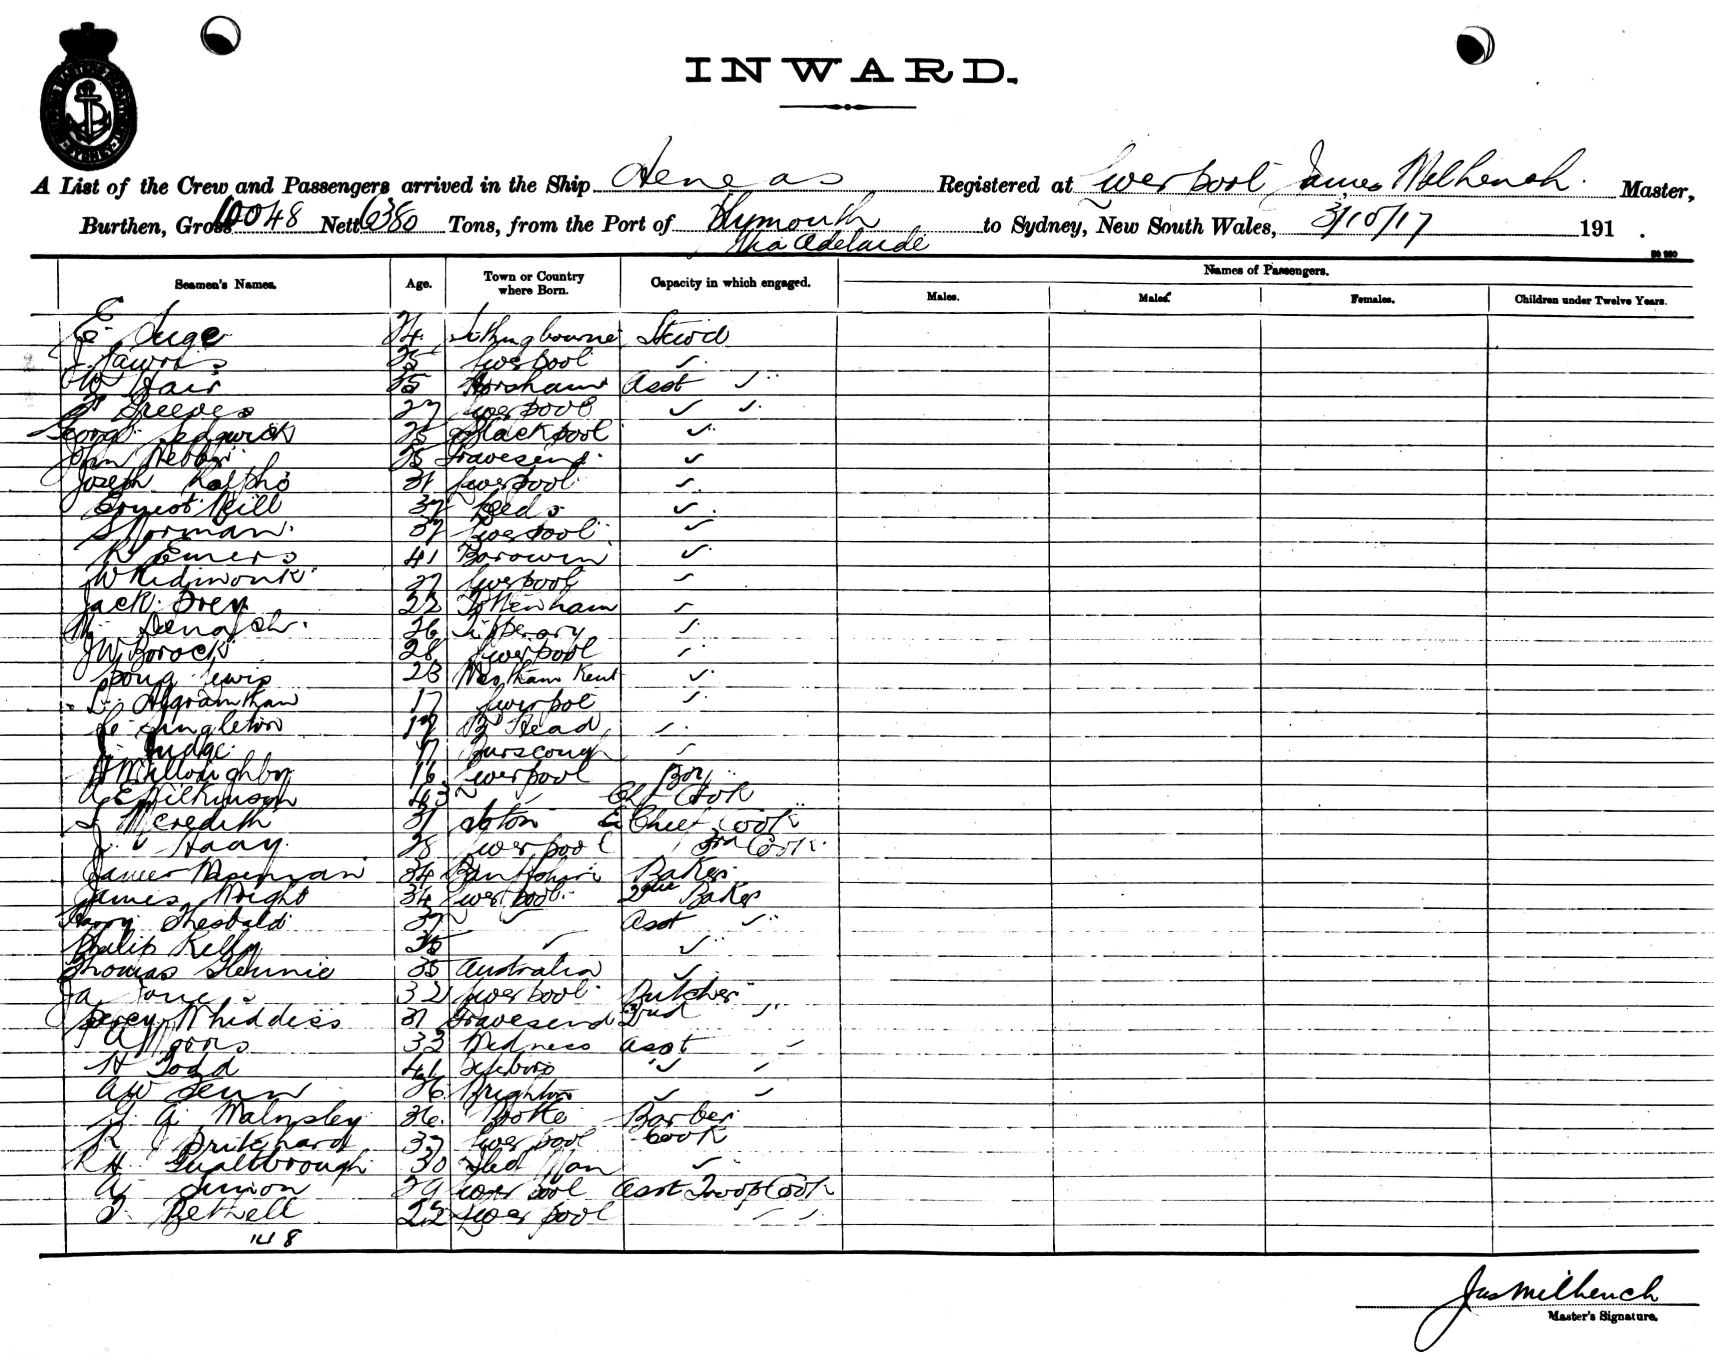 INWARD.
A List of the Crew and Passengers arrived in the Ship Aeneas Registered at Liverpool James Milhench. Master,
Burthen, Gross 10048 Nett 6380 Tons, from the Port of Plymouth to Sydney, New South Wales, 3/10/17 191 .
Via Adelaide
Seamen's Names. Age. Town or Country where Born. Capacity in which engaged. Names of Passengers.
Males. Males. Females. Children under Twelve Years.
E 24 Sittingbourne Stewd
Liverpool ✓
W Hair Horsham Asst ✓
Greeves 27 Liverpool ✓ ✓
George Sedgwick 25 Blackpool ✓
John Gravesend ✓
Joseph 31 Liverpool ✓
Ernest Neill 37 Leeds ✓
S Norman. 37 Liverpool ✓
R Emers 41 ✓
W Redmond 37 Liverpool ✓
Jack 22 Tottenham ✓
26 Tipperary ✓
JW 28 Liverpool ✓
Doug Lewis 23 Westham Kent ✓
17 Liverpol ✓
Singleton 17 B Head ✓
J Judge 17 Burscough ✓
H Willoughby 16 Liverpool Boy
A E Wilkinson 43 ✓ Chf Cook
Meredith 31 Soton Chief Cook
J Haay. 28 Liverpool 3rd Cook
James 34 Banffshire Baker
James Wright 34 Liverpool 2nd Baker
Harry Thesbald 37 ✓ Asst ✓
Philip Kelly 35 ✓ ✓
Thomas Glennie 35 Australia ✓
Ja Jones 32 Liverpool Butcher
Percy Whiddess 31 Gravesend 2nd ✓
33 Widness Asst ✓
H Todd 41 ✓ ✓
AW Fenn 36 Brighton ✓ ✓
G A Walmsley 36 Bootle Barber
R J Pritchard 37 Liverpool Cook
R H Gualtbrough 30 Isle Man ✓
A Simon 29 Liverpool Asst Troop Cook
J. Bethell 22 Liverpool ✓ ✓
148
Jas Milhench
Master's Signature.